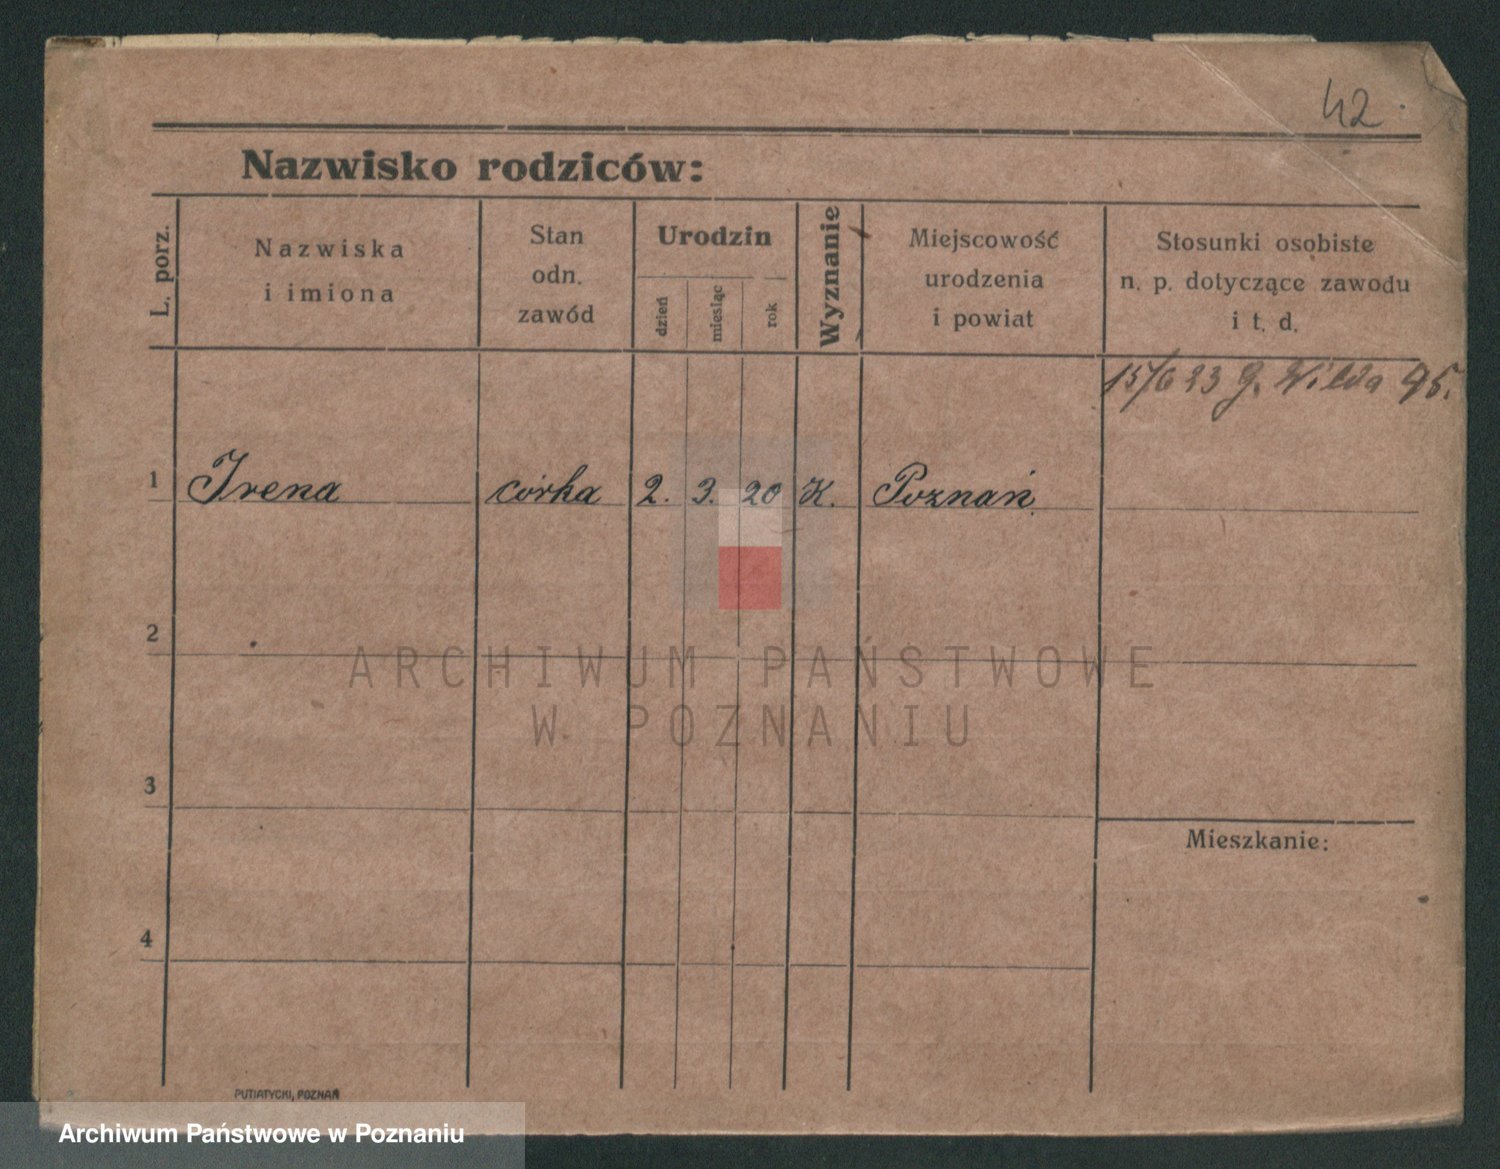 42.
Nazwisko rodziców:
L. porz.
Nazwiska
i imiona
Stan
odn.
zawód
Urodzin
dzień
miesiąc
rok
Wyznanie
Miejscowość
urodzenia
i powiat
Stosunki osobiste
n. p. dotyczące zawodu
i t. d.
15/6 23 G. Wilda 95.
1 Irena córka 2. 3. 20 K. Poznań
2
ARCHIWUM PAŃSTWOWE
W POZNANIU
3
Mieszkanie:
4
PUTIATYCKI, POZNAŃ
Archiwum Państwowe w Poznaniu